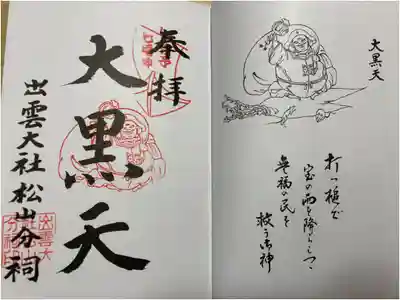 奉拝
大黒天
出雲大社松山分祠
大黒天
打つ槌で
宝の雨を降らしつゝ
無福の民を
救う御神